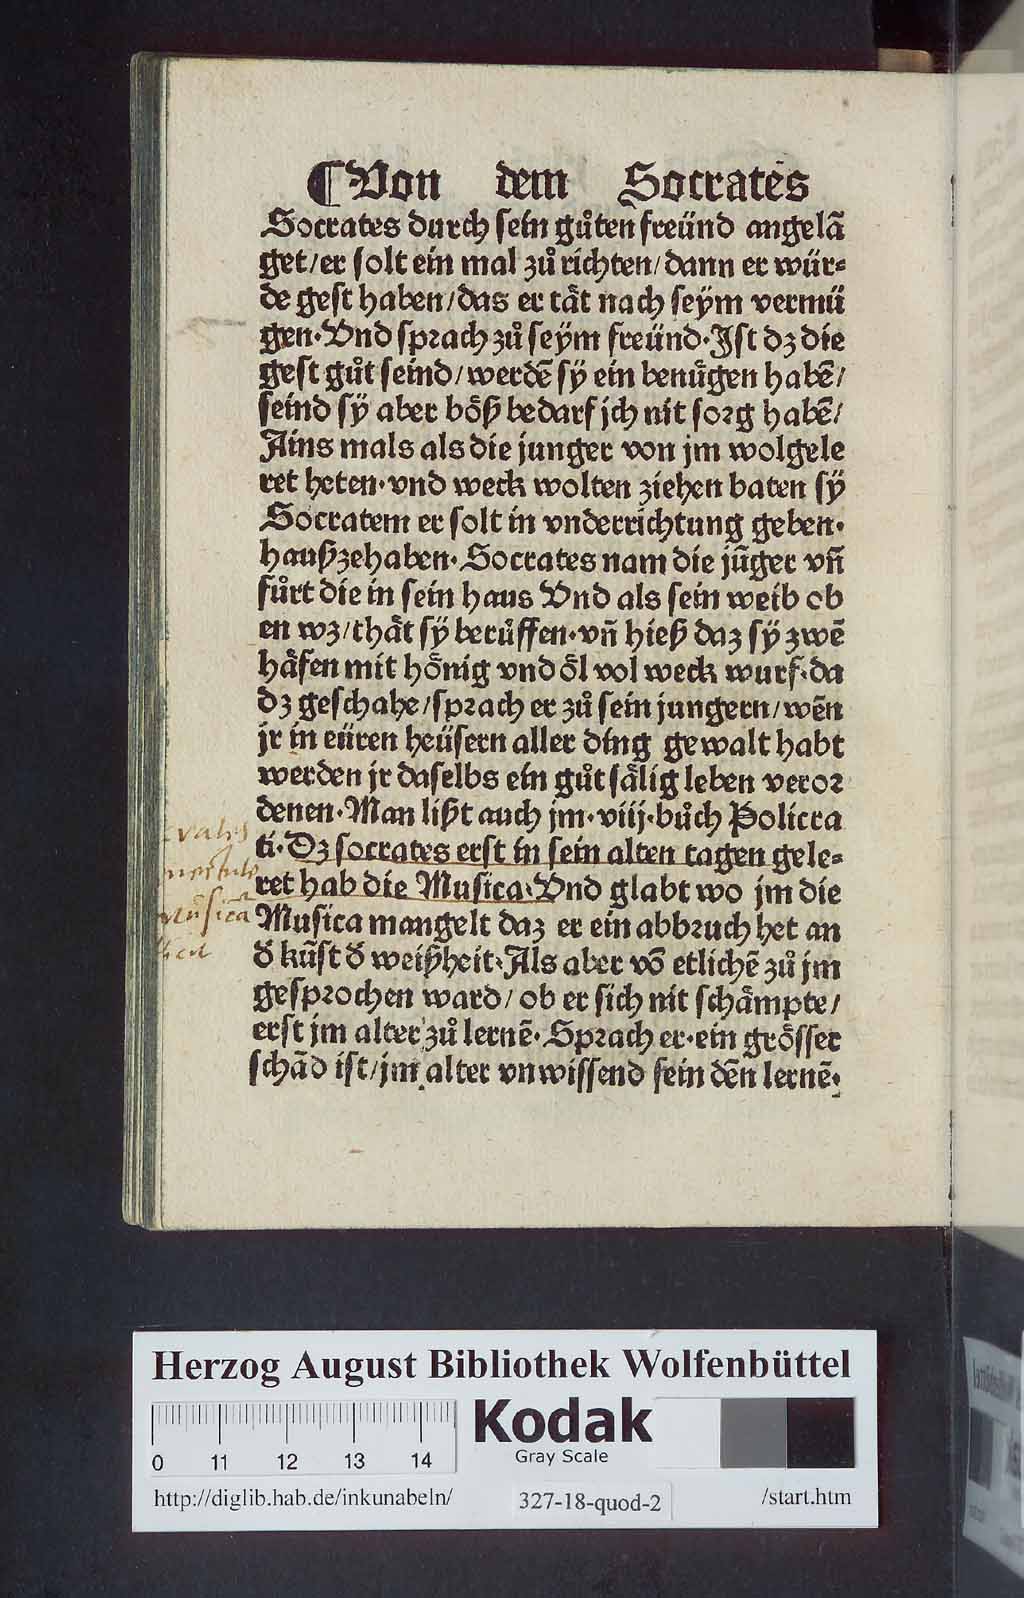 ¶ Von dem Socrates
Socrates durch sein gůten freünd angelā
get/er solt ein mal zů richten/dann er wür=
de gest haben/das er tåt nach seÿm vermü
gen·Vnd sprach zů seÿm freünd·Ist dz die
gest gůt seind/werdē sÿ ein benůgen habē/
seind sÿ aber böß bedarf jch nit sorg habē/
Ains mals als die junger von jm wolgele
ret heten·vnd weck wolten ziehen baten sÿ
Socratem er solt in vnderrichtung geben·
haußzehaben·Socrates nam die jūger vn̄
fůrt die in sein haus Vnd als sein weib ob
en wz/thåt sÿ berůffen·vn̄ hieß daz sÿ zwē
håfen mit hönig vnd öl vol weck wurf·da
dz geschahe/sprach er zů sein jungern/wēn
jr in eüren heüsern aller ding gewalt habt
werden jr daselbs ein gůt sålig leben veror
denen·Man lißt auch jm·viij·bůch Policra
ti·Dz socrates erst in sein alten tagen gele=
ret hab die Musica·Vnd glabt wo jm die
Musica mangelt daz er ein abbruch het an
ð kūst ð weißheit·Als aber vō etlichē zů jm
gesprochen ward/ob er sich nit schåmpte/
erst jm alter zů lernē·Sprach er·ein grösser
schād ist/jm alter vnwissend sein dēn lernē·
Musicā
Herzog August Bibliothek Wolfenbüttel
0 11 12 13 14
Kodak
Gray Scale
http://diglib.hab.de/inkunabeln/ 327-18-quod-2 /start.htm